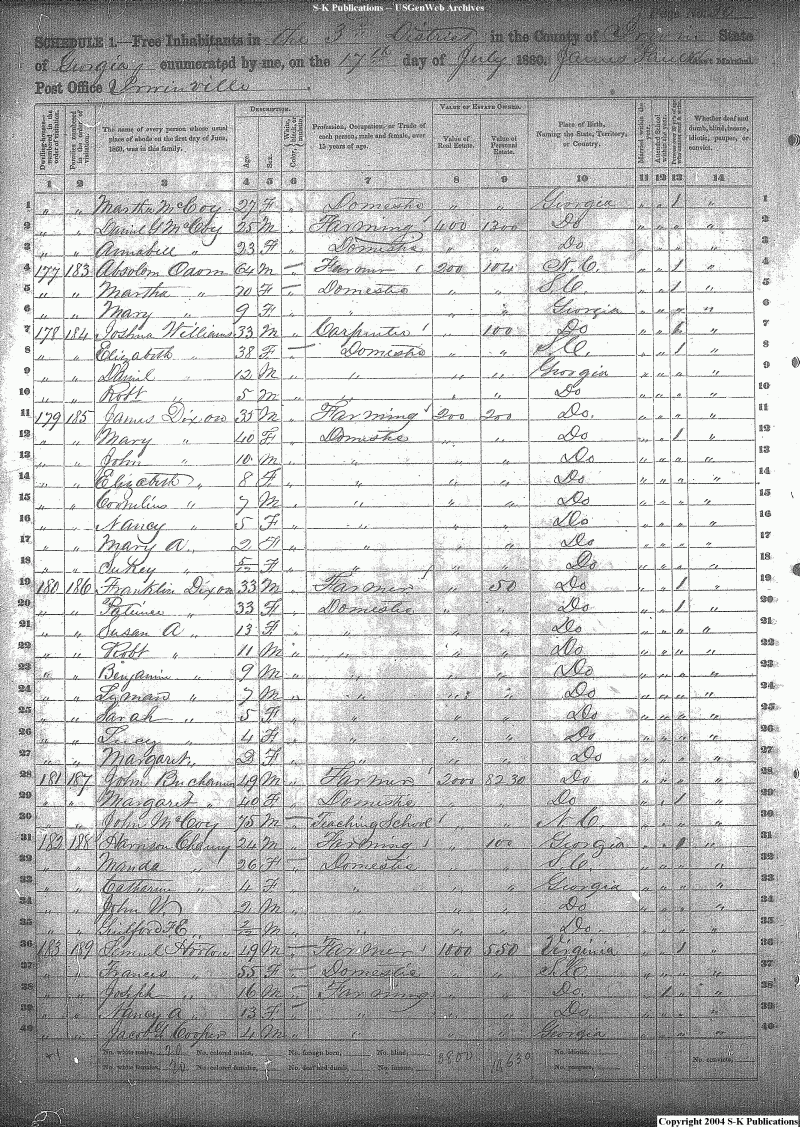 S-K Publications -- USGenWeb Archives
Page No.
SCHEDULE 1.—Free Inhabitants in the 3rd District in the County of State
of Georgia enumerated by me, on the 17th day of July 1860. James Ass't Marshal.
Post Office Irwinville
Dwelling-houses— numbered in the order of visitation.
Families numbered in the order of visitation.
The name of every person whose usual place of abode on the first day of June, 1860, was in this family.
DESCRIPTION.
Age.
Sex.
Color, White, black, or mulatto.
Profession, Occupation, or Trade of each person, male and female, over 15 years of age.
VALUE OF ESTATE OWNED.
Value of Real Estate.
Value of Personal Estate.
Place of Birth, Naming the State, Territory, or Country.
Married within the year.
Attended School within the year.
Whether deaf and dumb, blind, insane, idiotic, pauper, or convict.
1 2 3 4 5 6 7 8 9 10 11 12 13 14
1 " " Martha McCoy 27 F " Domestic " " Georgia " " 1 " 1
2 " " Daniel G McCoy 25 M " Farming 400 1300 Do " " " " 2
3 " " Annabell " 23 F " Domestic " " Do " " " " 3
4 177 183 Absolem Odom 64 M Farmer 200 104 N.C. " " 1 " 4
5 " " Martha " 70 F Domestic " " S.C. " " 1 " 5
6 " " Mary " 9 F " " " Georgia " " " " 6
7 178 184 Joshua Williams 33 M Carpenter " 100 Do " " " 7
8 " " Elizabeth " 38 F Domestic " " S.C. " " 1 " 8
9 " " Daniel " 12 M " " " Georgia " " " " 9
10 " " Robt " 5 M " " " Do " " " " 10
11 179 185 James Dixon 35 M " Farming 200 200 Do. " " " " 11
12 " " Mary " 40 F " Domestic " " Do " " 1 " 12
13 " " John " 10 M " " " " Do " " " " 13
14 " " Elizabeth " 8 F " " " " Do " " " " 14
15 " " Cornelius " 7 M " " " " Do " " " " 15
16 " " Nancy " 5 F " " " " Do " " " " 16
17 " " Mary A " 2 F " " " " Do " " " " 17
18 " " Sukey " F " " " " Do " " " " 18
19 180 186 Franklin Dixon 33 M " Farmer " 50 Do " " 1 " 19
20 " " Patience " 33 F " Domestic " " Do " " 1 " 20
21 " " Susan A " 13 F " " " " Do " " " " 21
22 " " Robt " 11 M " " " " Do " " " " 22
23 " " Benjamin " 9 M " " " " Do " " " " 23
24 " " Lyman " 7 M " " " " Do " " " " 24
25 " " Sarah " 5 F " " " " Do " " " " 25
26 " " Lucy " 4 F " " " " Do " " " " 26
27 " " Margaret " F " " " " Do " " " " 27
28 181 187 John Buchannon 49 M " Farmer 2000 8230 Do " " " " 28
29 " " Margaret " 40 F " Domestic " " Do " " 1 " 29
30 " " John McCoy 75 M Teaching School " " N.C. " " " " 30
31 182 188 Harrison 24 M " Farming " 100 Georgia " " " 31
32 " " Manda " 26 F Domestic " " S.C. " " " " 32
33 " " Catharine " 4 F " " " " Georgia " " " " 33
34 " " John W. " 2 M " " " " Do " " " " 34
35 " " Guilford " M " " " " Do. " " " " 35
36 183 189 Horton 49 M Farmer 1000 550 Virginia " " 1 " 36
37 " " Frances " 55 F Domestic " " S.C. " " " " 37
38 " " Joseph " 16 M Farming " " Do. " 1 " " 38
39 " " Nancy A " 13 F " " " Do. " " " " 39
40 " " Jacob Cooper 4 M " " " " Georgia " " " " 40
No. white males, 20 No. colored males, No. foreign born, No. blind, 3800 No. idiotic,
No. white females, 20 No. colored females, No. deaf and dumb, No. insane, No. paupers, No. convicts,
Copyright 2004 S-K Publications